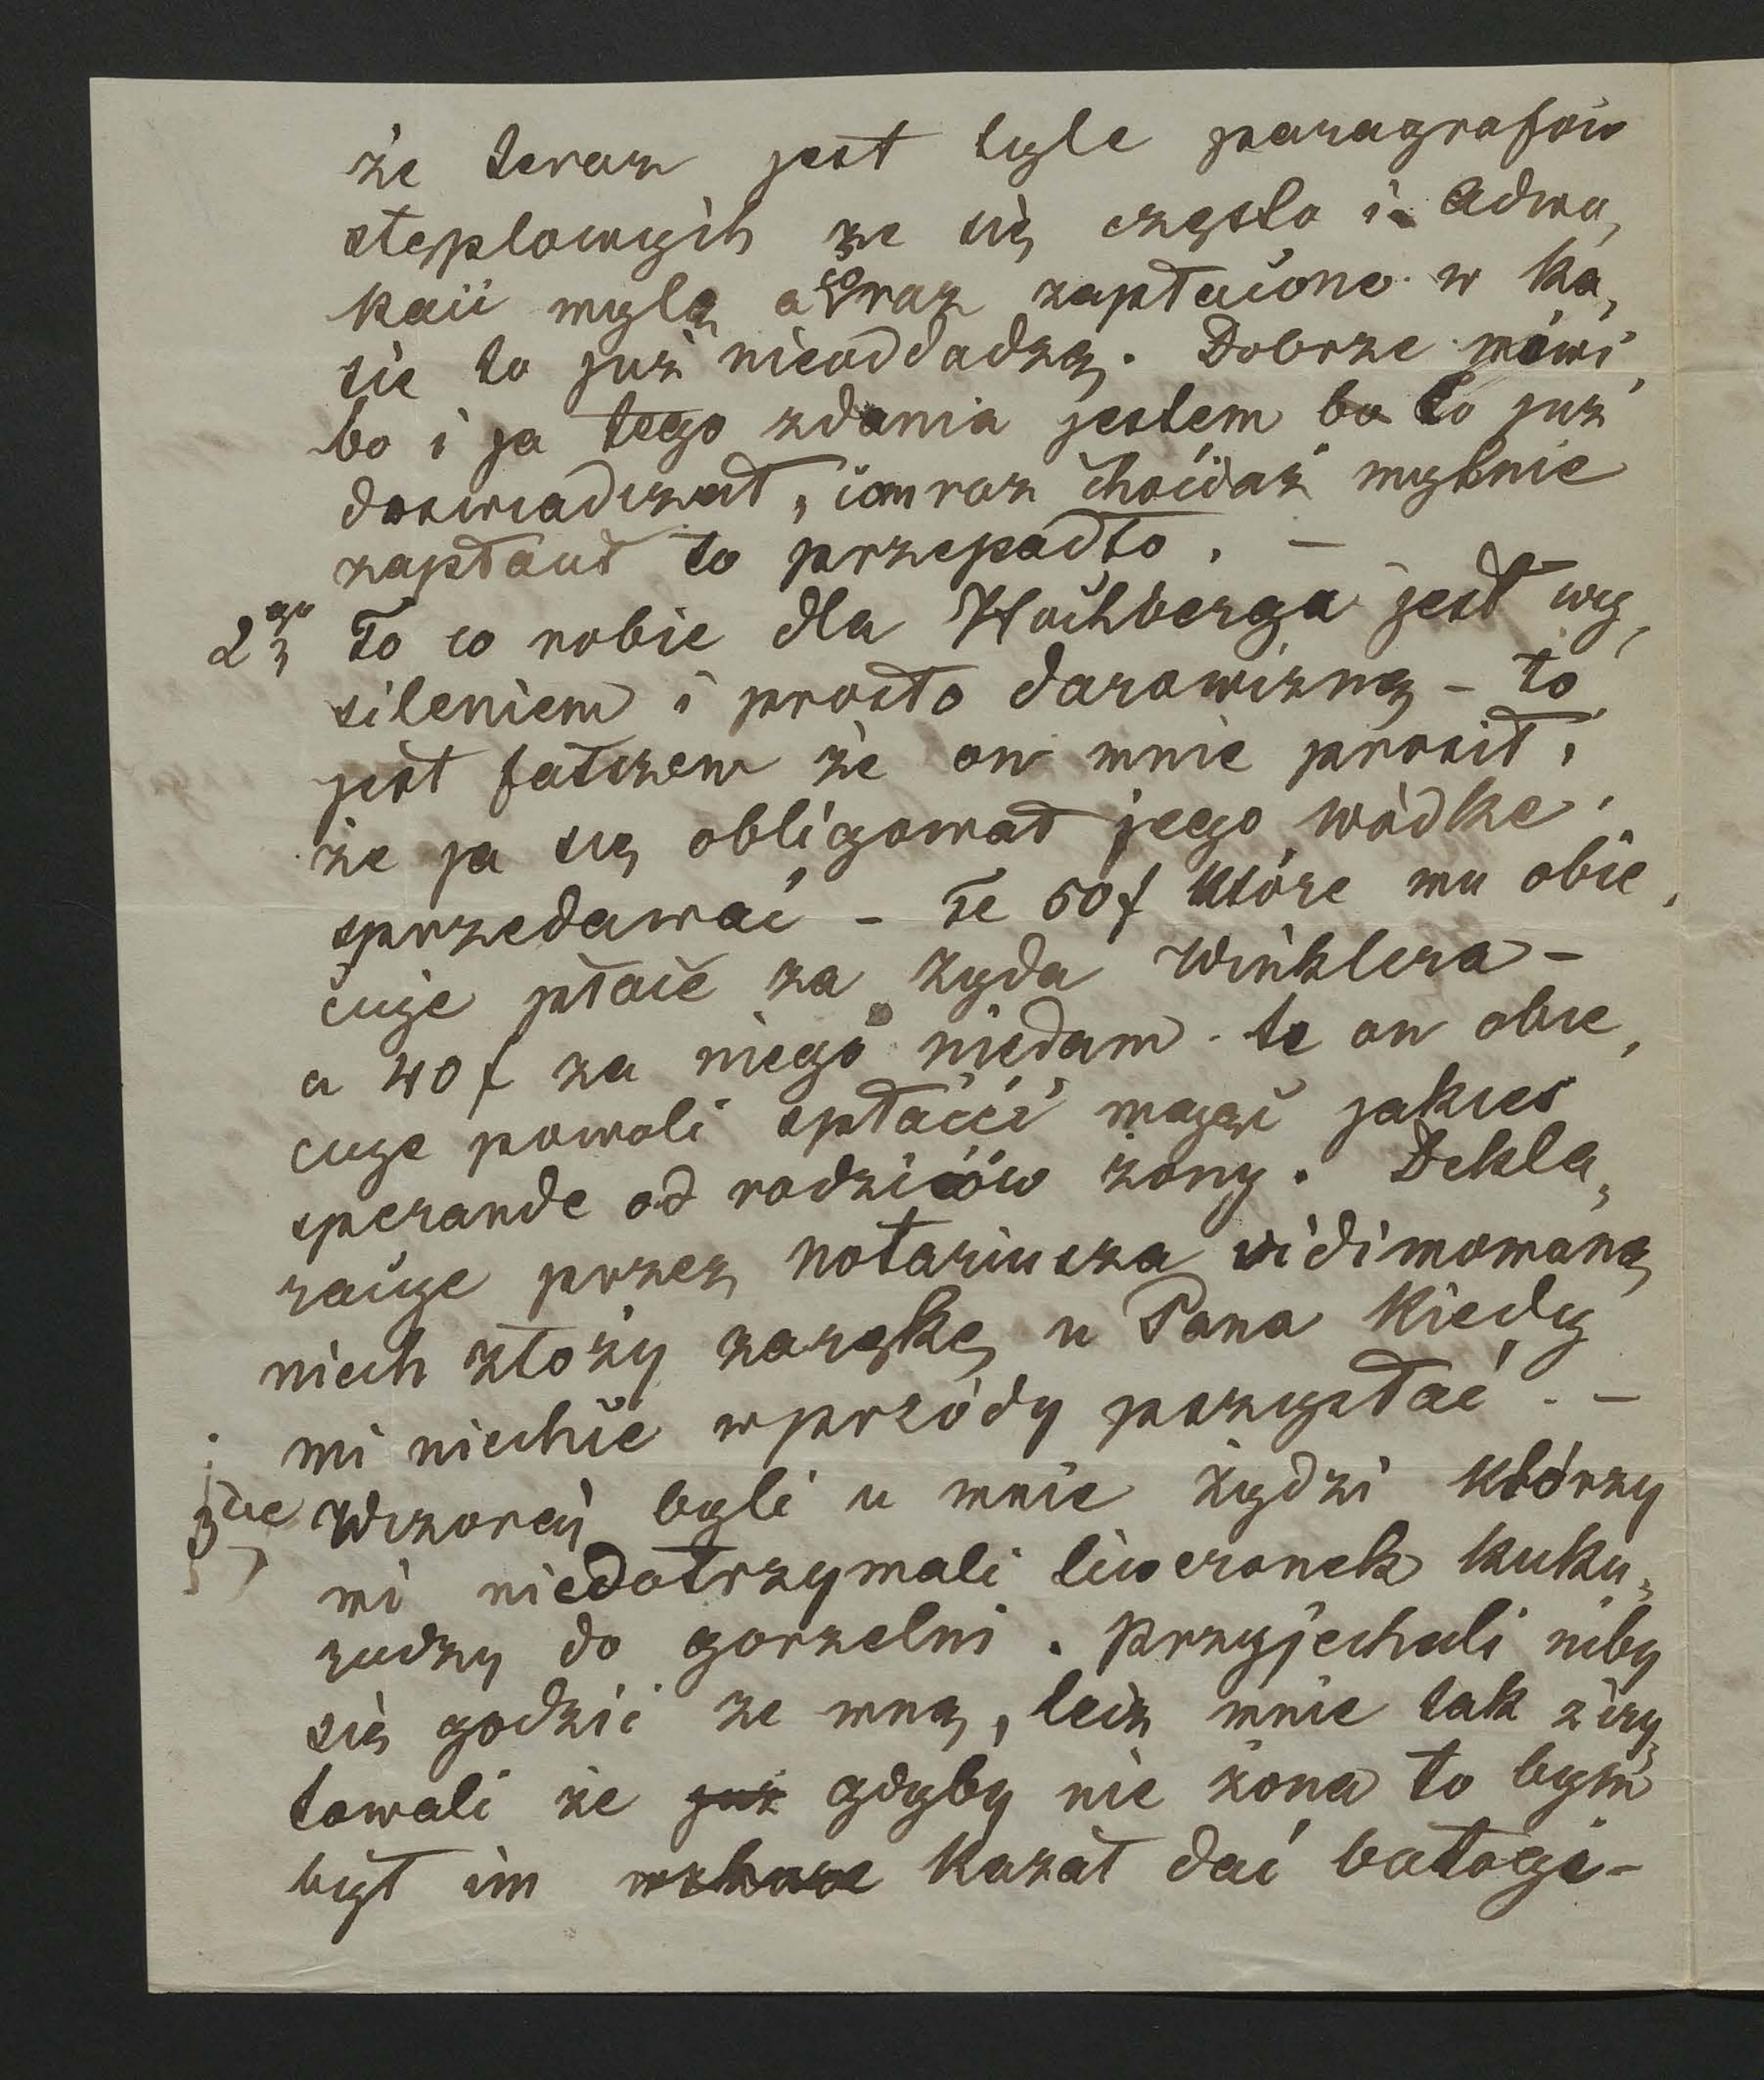 że teraz jest tyle paragrafów
steplowych że się często i adwo,
kaci mylą a co raz zapłacone w ka,
sie to już nieoddadzą. Dobrze mówi
bo i ja tego zdania jestem bo to już
doswiadczał, com raz chociaż mylnie
zapłacił to przepadło. –
2go To co robie dla Hochberga jest wy,
sileniem i prosto darowizną – to
jest fałszem że on mnie prosił,
że ja się obligował jego wódke
sprzedawać – Te 50 f które mu obie,
cuje płace za żyda Winklera –
a 40 f za niego niedam. te on obie,
cuje powoli spłacić mając jakies
sperande od rodziców żony. Dekla,
racije przez notariusza vidimowaną
niech złoży zarękę u Pana kiedy
mi niechce wprzódy przysłać. –
3cie Wczoraj byli u mnie żydzi którzy
mi niedotrzymali liweronek kuku,
rudzy do gorzelni. przyjechali niby
się godzić ze mną, lecz mnie tak ziry,
towali że już gdyby nie żona to bym
był im kazał dać batogi –